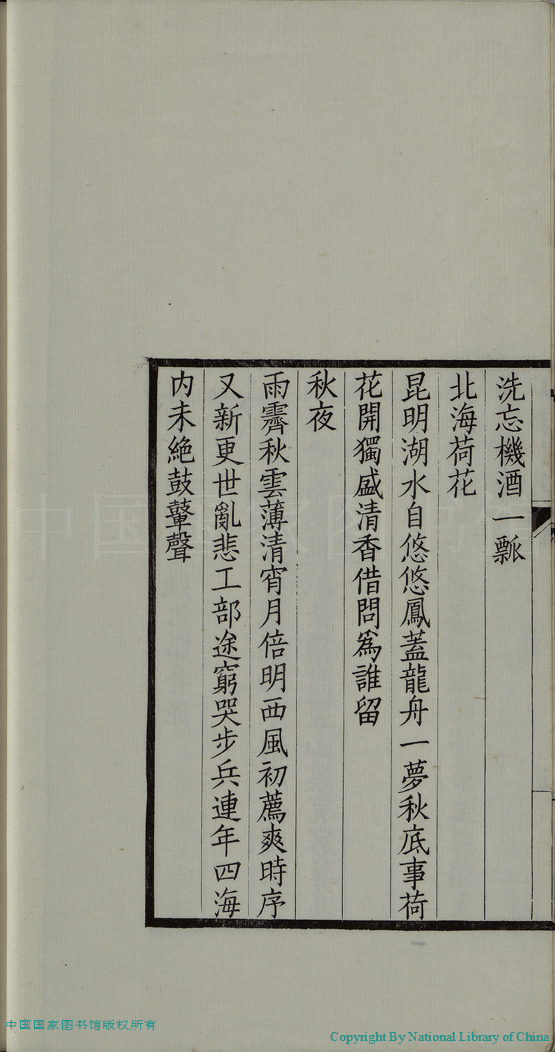 洗忘機酒一瓢
北海荷花
昆明湖水自悠悠鳳蓋龍舟一夢秋底事荷
花開獨盛清香借問爲誰留
秋夜
雨霽秋雲薄清宵月倍明西風初薦爽時序
又新更世亂悲工部途窮哭步兵連年四海
内未絶鼓鼙聲
中国国家图书馆版权所有
Copyright By National Library of China